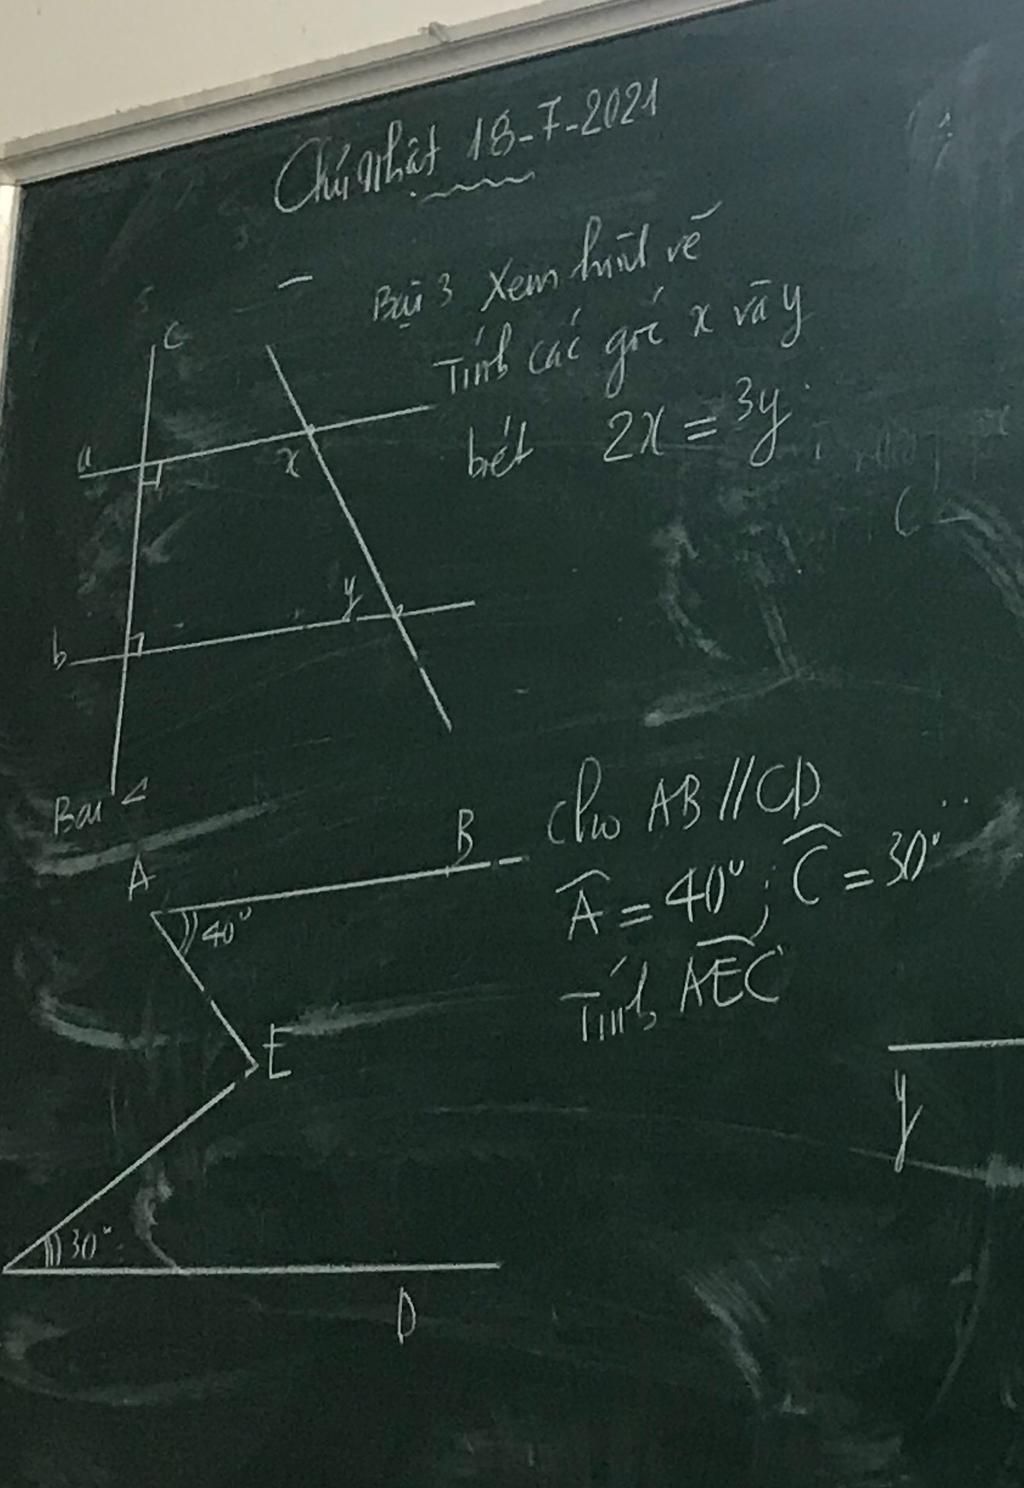 Chủ Nhật 18-7-2021
Bài 3 Xem hình vẽ
Tính các góc x và y
biết 2x = 3y
c
a
x
y
b
Bài 4
A
B
Cho AB // CD
40°
Â = 40° ; Ĉ = 30°
Tính AEC
E
y
30°
D